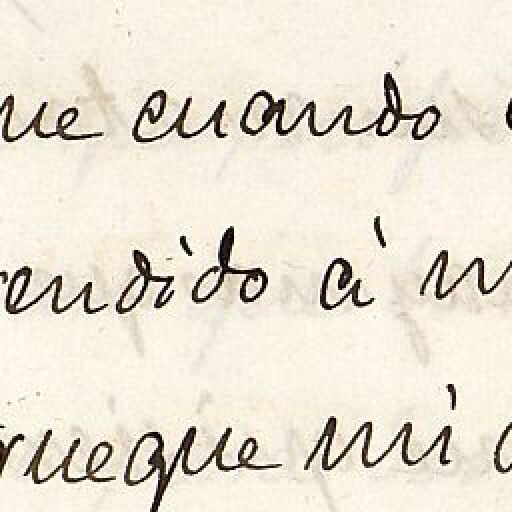 ue cuando
endido à m
rueque mi